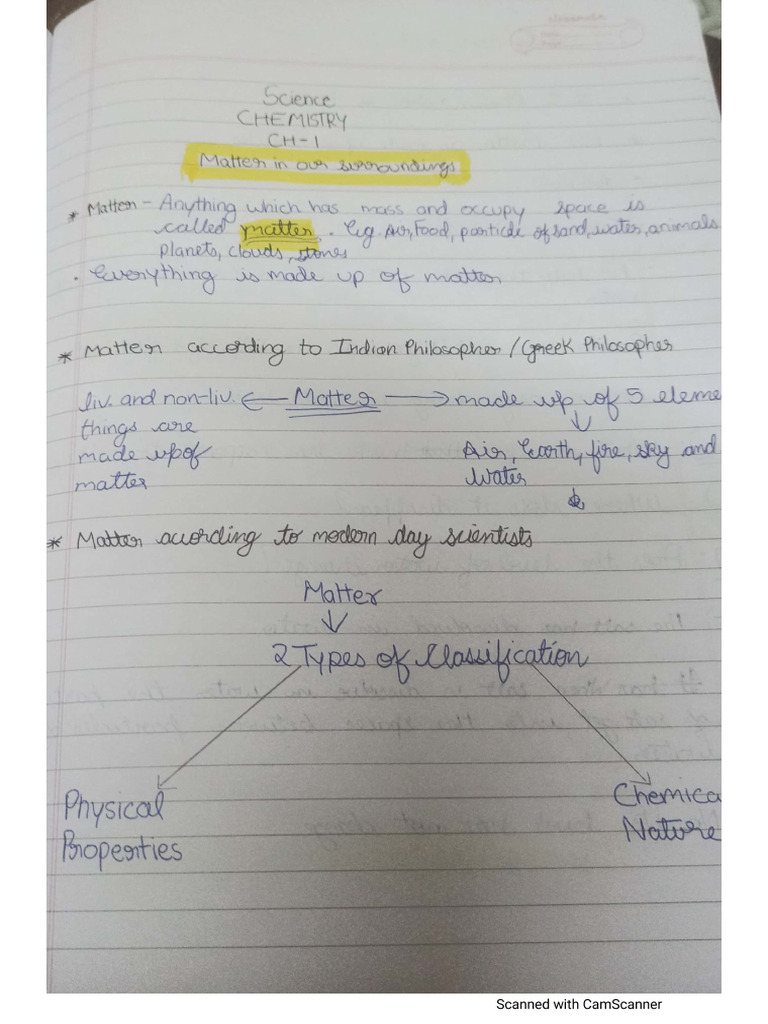 Science
CHEMISTRY
CH-1
Matter in our surroundings
* Matter - Anything which has mass and occupy space is
called matter. Eg. Air, Food, particle of sand, water, animals
planets, clouds, stones
. Everything is made up of matter
* Matter according to Indian Philosopher / Greek Philosopher
liv. and non-liv. ← Matter → made up of 5 eleme
things are
made up of
matter
↓
Air, Earth, fire, sky and
Water
* Matter acording to modern day scientists
Matter
↓
2 Types of Classification
Physical
Properties
Chemica
Nature
Scanned with CamScanner